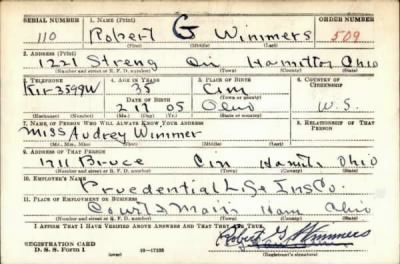 SERIAL NUMBER 1. NAME (Print) ORDER NUMBER
110 Robert G Wimmers 509
(First) (Middle) (Last)
2. ADDRESS (Print)
1221 Streng Cin Hamilton Ohio
(Number and street or R. F. D. number) (Town) (County) (State)
3. TELEPHONE 4. AGE IN YEARS 5. PLACE OF BIRTH 6. COUNTRY OF CITIZENSHIP
Kir 3549W 35 Cin
DATE OF BIRTH (Town or county)
2 17 05 Ohio U.S.
(Exchange) (Number) (Mo.) (Day) (Yr.) (State or country)
7. NAME OF PERSON WHO WILL ALWAYS KNOW YOUR ADDRESS 8. RELATIONSHIP OF THAT PERSON
Miss Audrey Wimmer
(Mr., Mrs., Miss) (First) (Middle) (Last)
9. ADDRESS OF THAT PERSON
1711 Bruce Cin Hamil Ohio
(Number and street or R. F. D. number) (Town) (County) (State)
10. EMPLOYER'S NAME
Pruedential Life Ins Co.
11. PLACE OF EMPLOYMENT OR BUSINESS
Court & Main Ham Ohio
(Number and street or R. F. D. number) (Town) (County) (State)
I AFFIRM THAT I HAVE VERIFIED ABOVE ANSWERS AND THAT THEY ARE TRUE.
Robert G Wimmers
REGISTRATION CARD
D. S. S. Form 1 (over) (Registrant's signature)